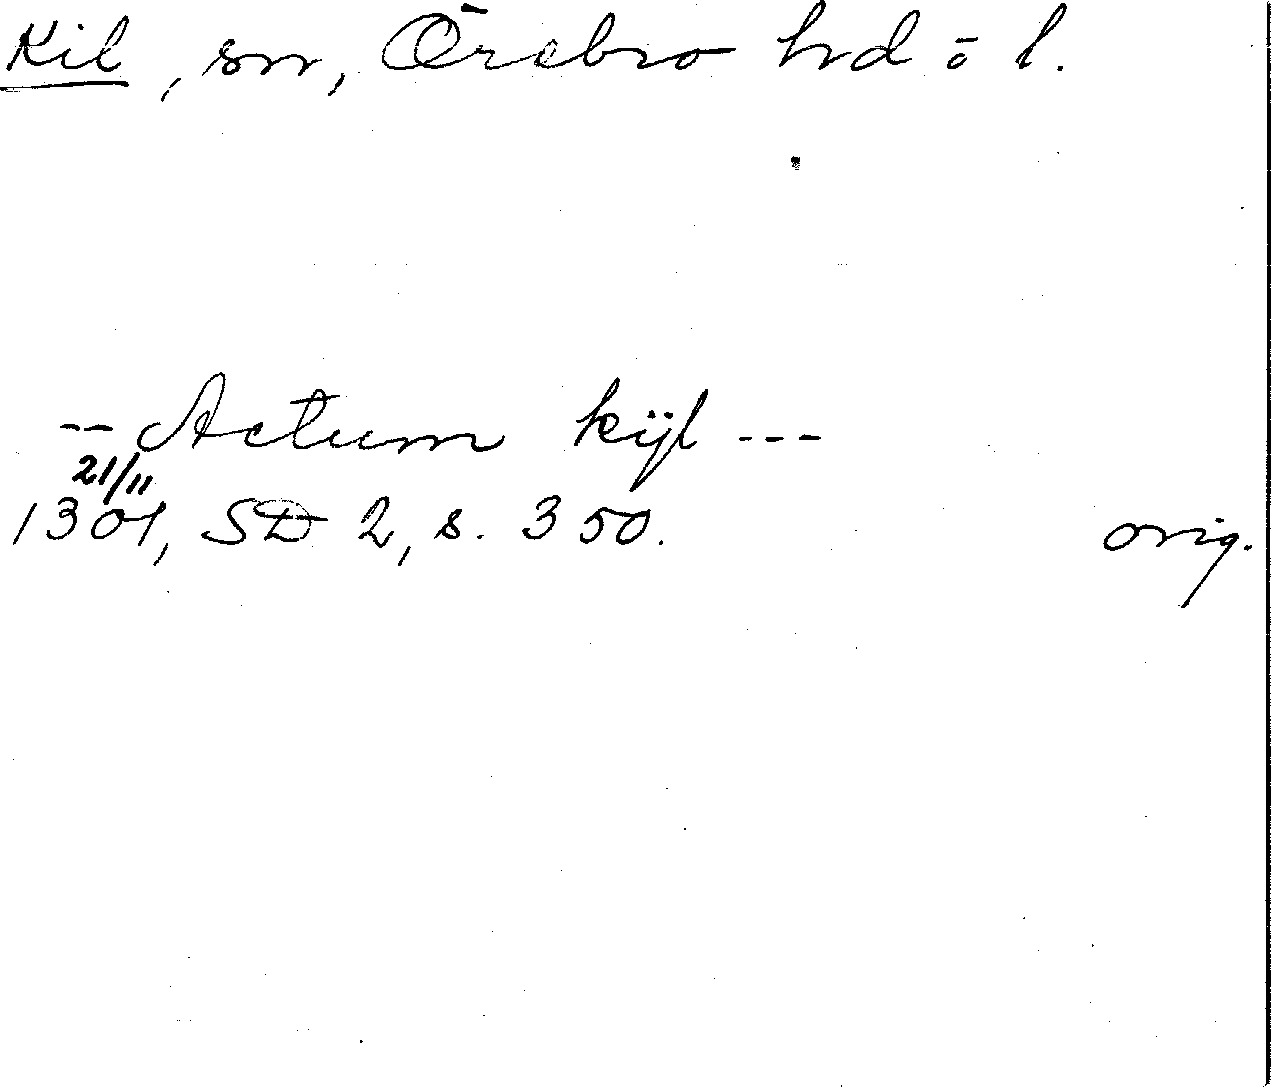 Kil, sn, Örebro hd ō l.
-- Actum kijl ---
21/11
1301, SD 2, s. 350. orig.